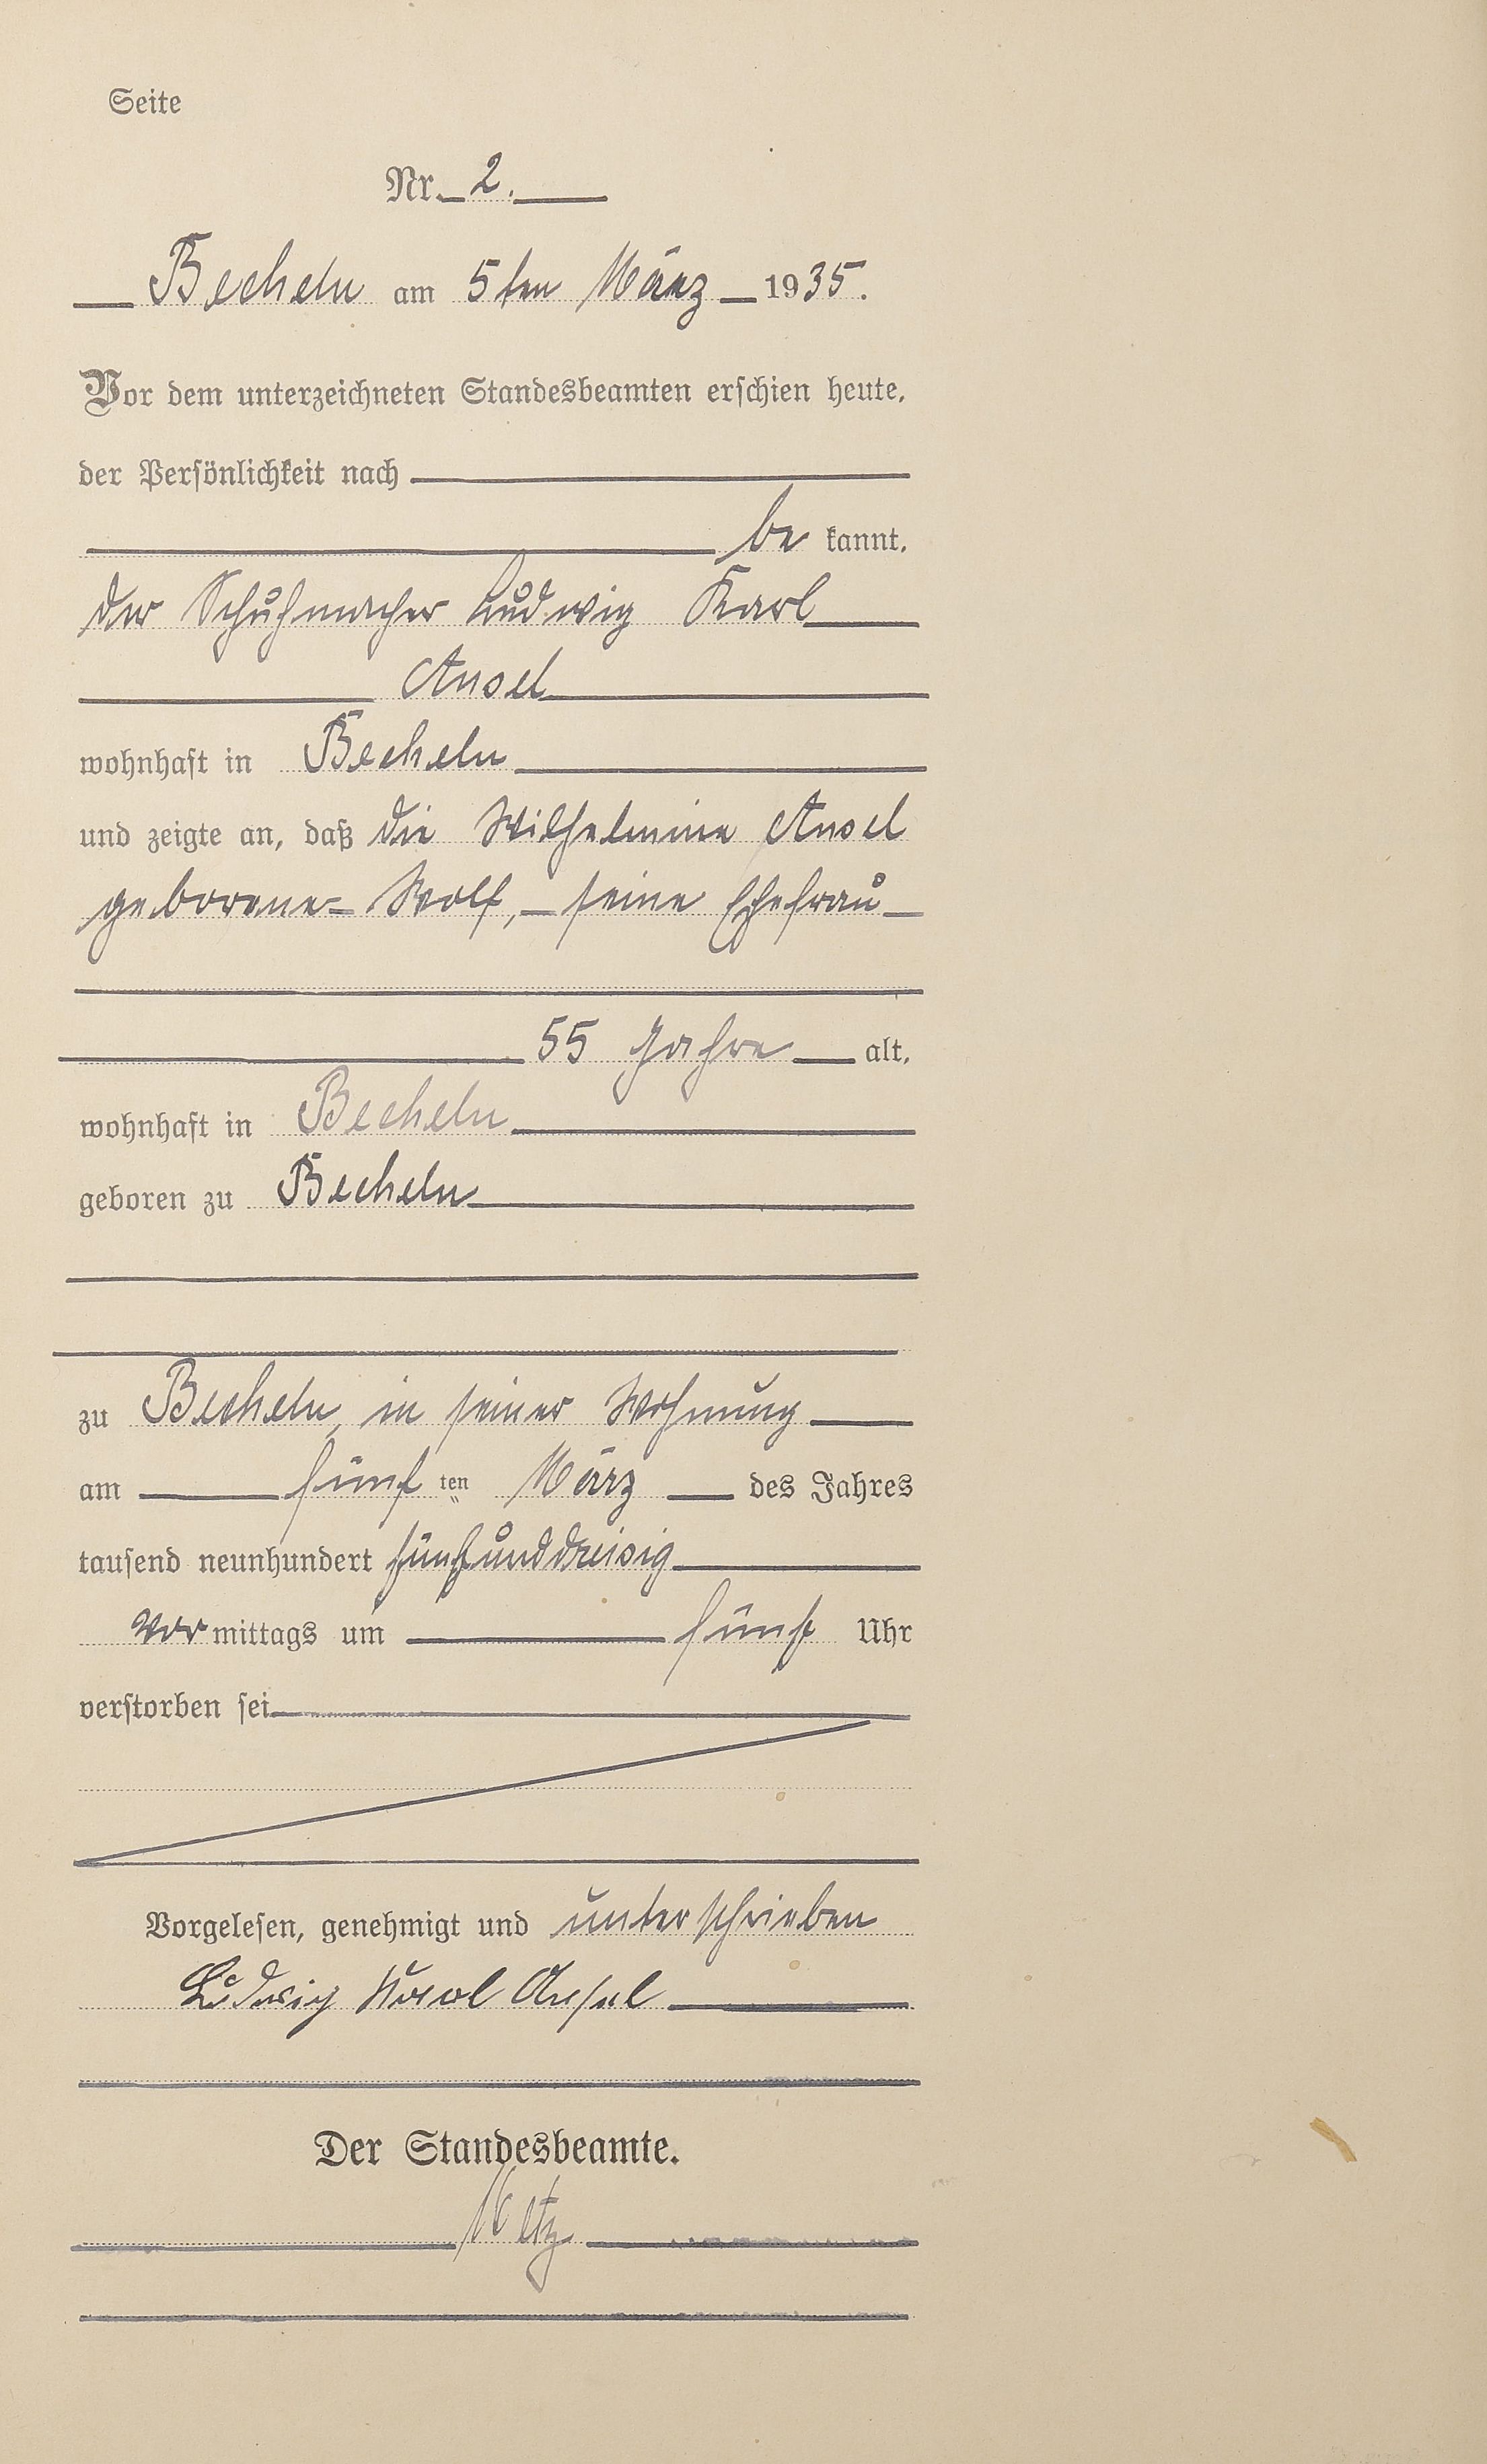 Seite
Nr. 2.
Becheln am 5ten März 1935.
Vor dem unterzeichneten Standesbeamten erschien heute,
der Persönlichkeit nach
be kannt,
der Schuhmacher Ludwig Karl
Ansel
wohnhaft in Becheln
und zeigte an, daß die Wilhelmine Ansel
geborene Wolf, seine Ehefrau
55 Jahre alt,
wohnhaft in Becheln
geboren zu Becheln
zu Becheln, in seiner Wohnung
am fünf ten März des Jahres
tausend neunhundert fünfunddreisig
Vor mittags um fünf Uhr
verstorben sei
Vorgelesen, genehmigt und unterschrieben
Ludwig Karl Ansel
Der Standesbeamte.